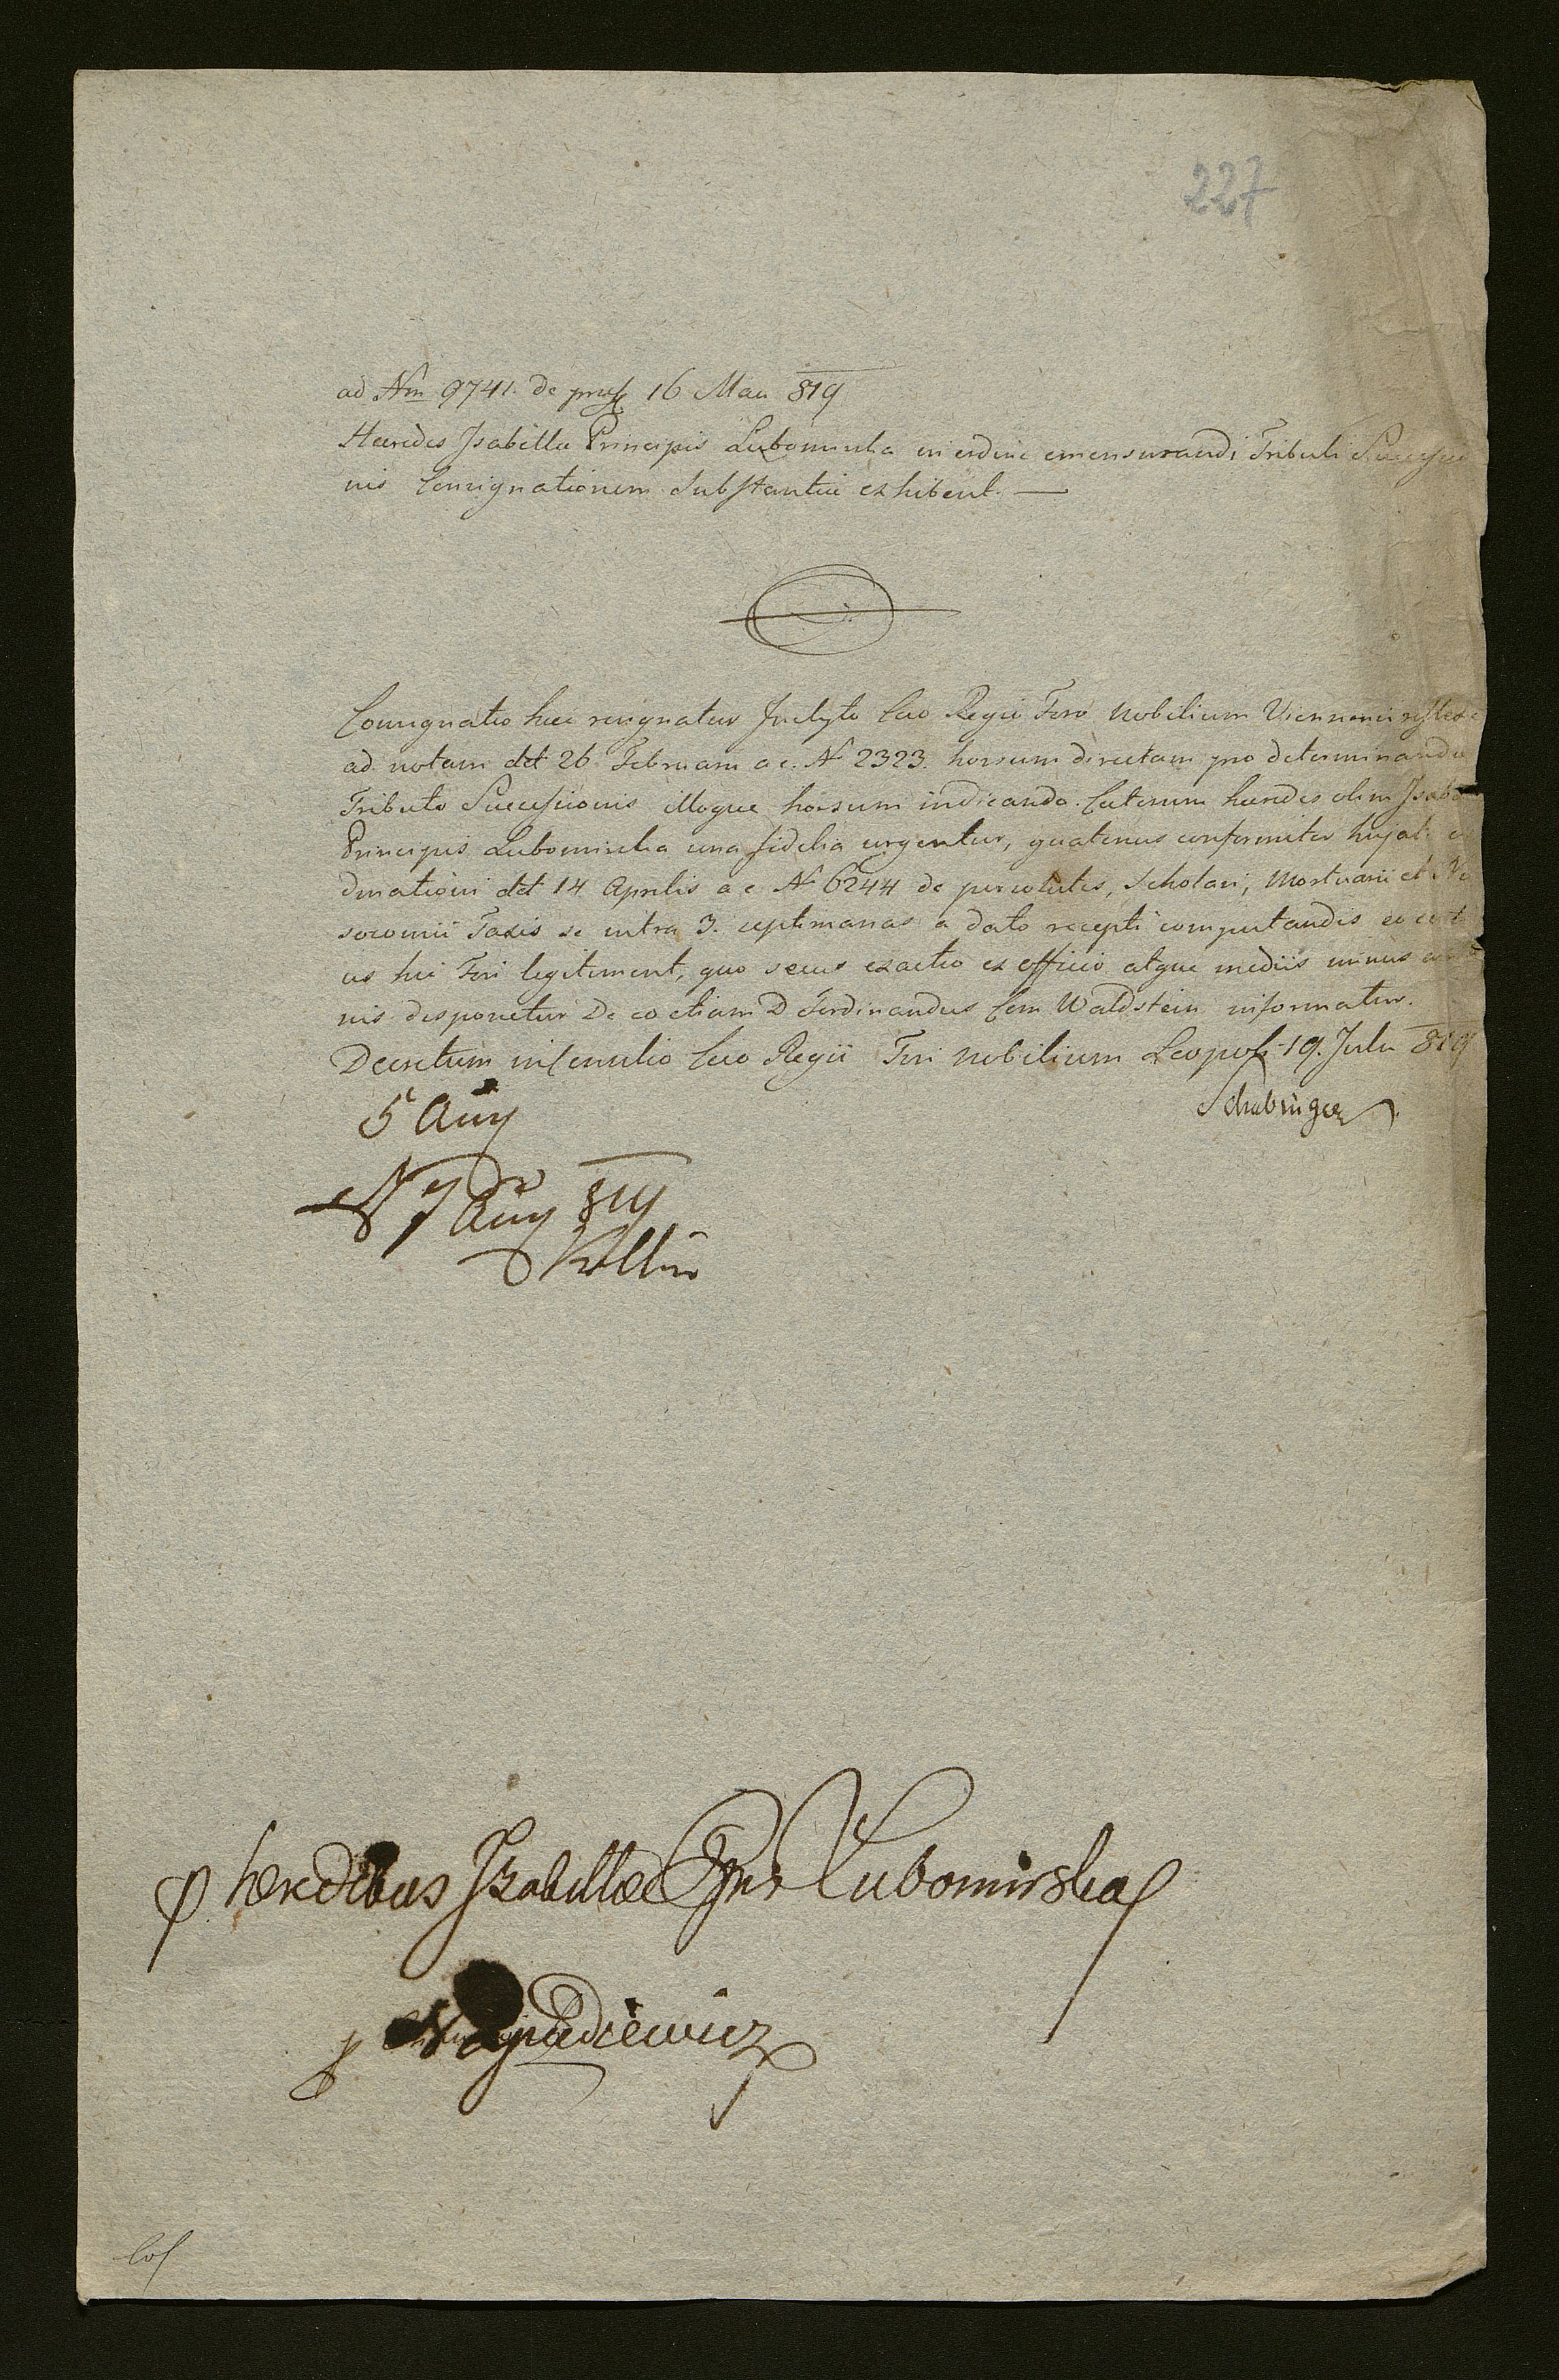 227
ad Nm 9741. de præs 16 Maii 819
Hæredes Isabellæ Principis Lubomirska in ordine emensurandi Tributi Successio
nis Consignationem Substantiæ exhibent. —
Consignatio hæc resignatur Inclyto Cæo Regio Foro Nobilium Viennensi
ad notam ddt 26 Februarii a c. N 2323. horsum directam pro determinando
Tributo Successionis illoque horsum indicando. Cæterum hæredes olim
Principis Lubomirska una fidelia urgentur, quatenus conformiter hujati
dinationi ddt 14 Aprilis a c N 6244 de persolutis, Scholari, Mortuarii et No
socomii Taxis se intra 3. septimanas a dato recepti computandis eo
us hic Fori legitiment, quo secus exactio ex officio atque mediis minus
nis disponetur De eo etiam D Ferdinandus Com Waldstein informatur.
Decretum in Consilio Cæo Regii Fori Nobilium Leopoli 19. Julii 819
Schabinger
5 Aug
7 Aug 819
Kollin
p hæredibus Isabellæ Ppis Lubomirska